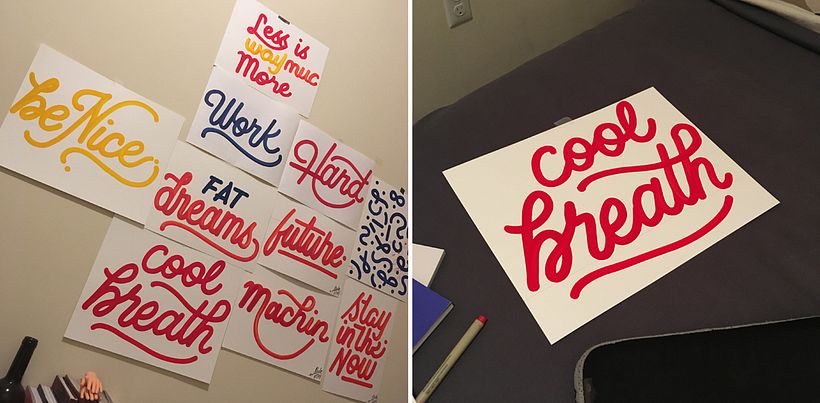 Less is
way muc
More
be Nice.
Work
Hard
FAT
dreams
future.
cool
breath
Machin
stay
in the
NOW
cool
breath